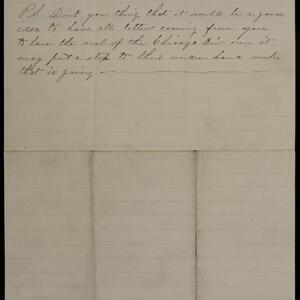 P.S. Dont you thing that it would be a good
idea to have all letters coming from you
to have the seal of the Chicago Div on it
may put a stop to this under hand work
that is going